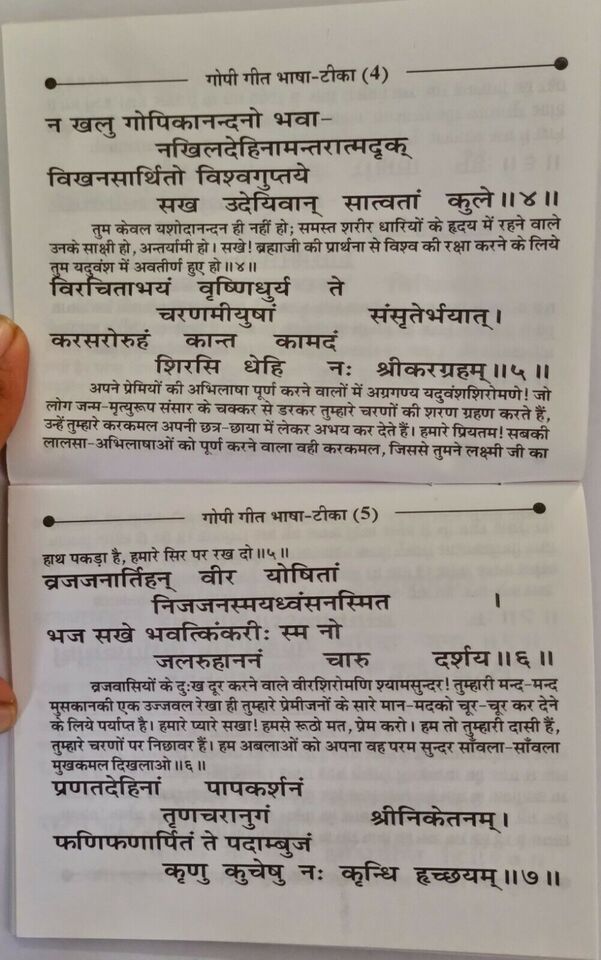 गोपी गीत भाषा-टीका (4)
न खलु गोपिकानन्दनो भवा-
नखिलदेहिनामन्तरात्मदृक्
विखनसार्थितो विश्वगुप्तये
सख उदेयिवान् सात्वतां कुले॥४॥
तुम केवल यशोदानन्दन ही नहीं हो; समस्त शरीर धारियों के हृदय में रहने वाले
उनके साक्षी हो, अन्तर्यामी हो। सखे! ब्रह्माजी की प्रार्थना से विश्व की रक्षा करने के लिये
तुम यदुवंश में अवतीर्ण हुए हो॥४॥
विरचिताभयं वृष्णिधुर्य ते
चरणमीयुषां संसृतेर्भयात्।
करसरोरुहं कान्त कामदं
शिरसि धेहि नः श्रीकरग्रहम्॥५॥
अपने प्रेमियों की अभिलाषा पूर्ण करने वालों में अग्रगण्य यदुवंशशिरोमणे! जो
लोग जन्म-मृत्युरूप संसार के चक्कर से डरकर तुम्हारे चरणों की शरण ग्रहण करते हैं,
उन्हें तुम्हारे करकमल अपनी छत्र-छाया में लेकर अभय कर देते हैं। हमारे प्रियतम! सबकी
लालसा-अभिलाषाओं को पूर्ण करने वाला वही करकमल, जिससे तुमने लक्ष्मी जी का
गोपी गीत भाषा-टीका (5)
हाथ पकड़ा है, हमारे सिर पर रख दो॥५॥
व्रजजनार्तिहन् वीर योषितां
निजजनस्मयध्वंसनस्मित ।
भज सखे भवत्किंकरीः स्म नो
जलरुहाननं चारु दर्शय॥६॥
व्रजवासियों के दुःख दूर करने वाले वीरशिरोमणि श्यामसुन्दर! तुम्हारी मन्द-मन्द
मुसकानकी एक उज्जवल रेखा ही तुम्हारे प्रेमीजनों के सारे मान-मदको चूर-चूर कर देने
के लिये पर्याप्त है। हमारे प्यारे सखा! हमसे रूठो मत, प्रेम करो। हम तो तुम्हारी दासी हैं,
तुम्हारे चरणों पर निछावर हैं। हम अबलाओं को अपना वह परम सुन्दर साँवला-साँवला
मुखकमल दिखलाओ॥६॥
प्रणतदेहिनां पापकर्शनं
तृणचरानुगं श्रीनिकेतनम्।
फणिफणार्पितं ते पदाम्बुजं
कृणु कुचेषु नः कृन्धि हृच्छयम्॥७॥